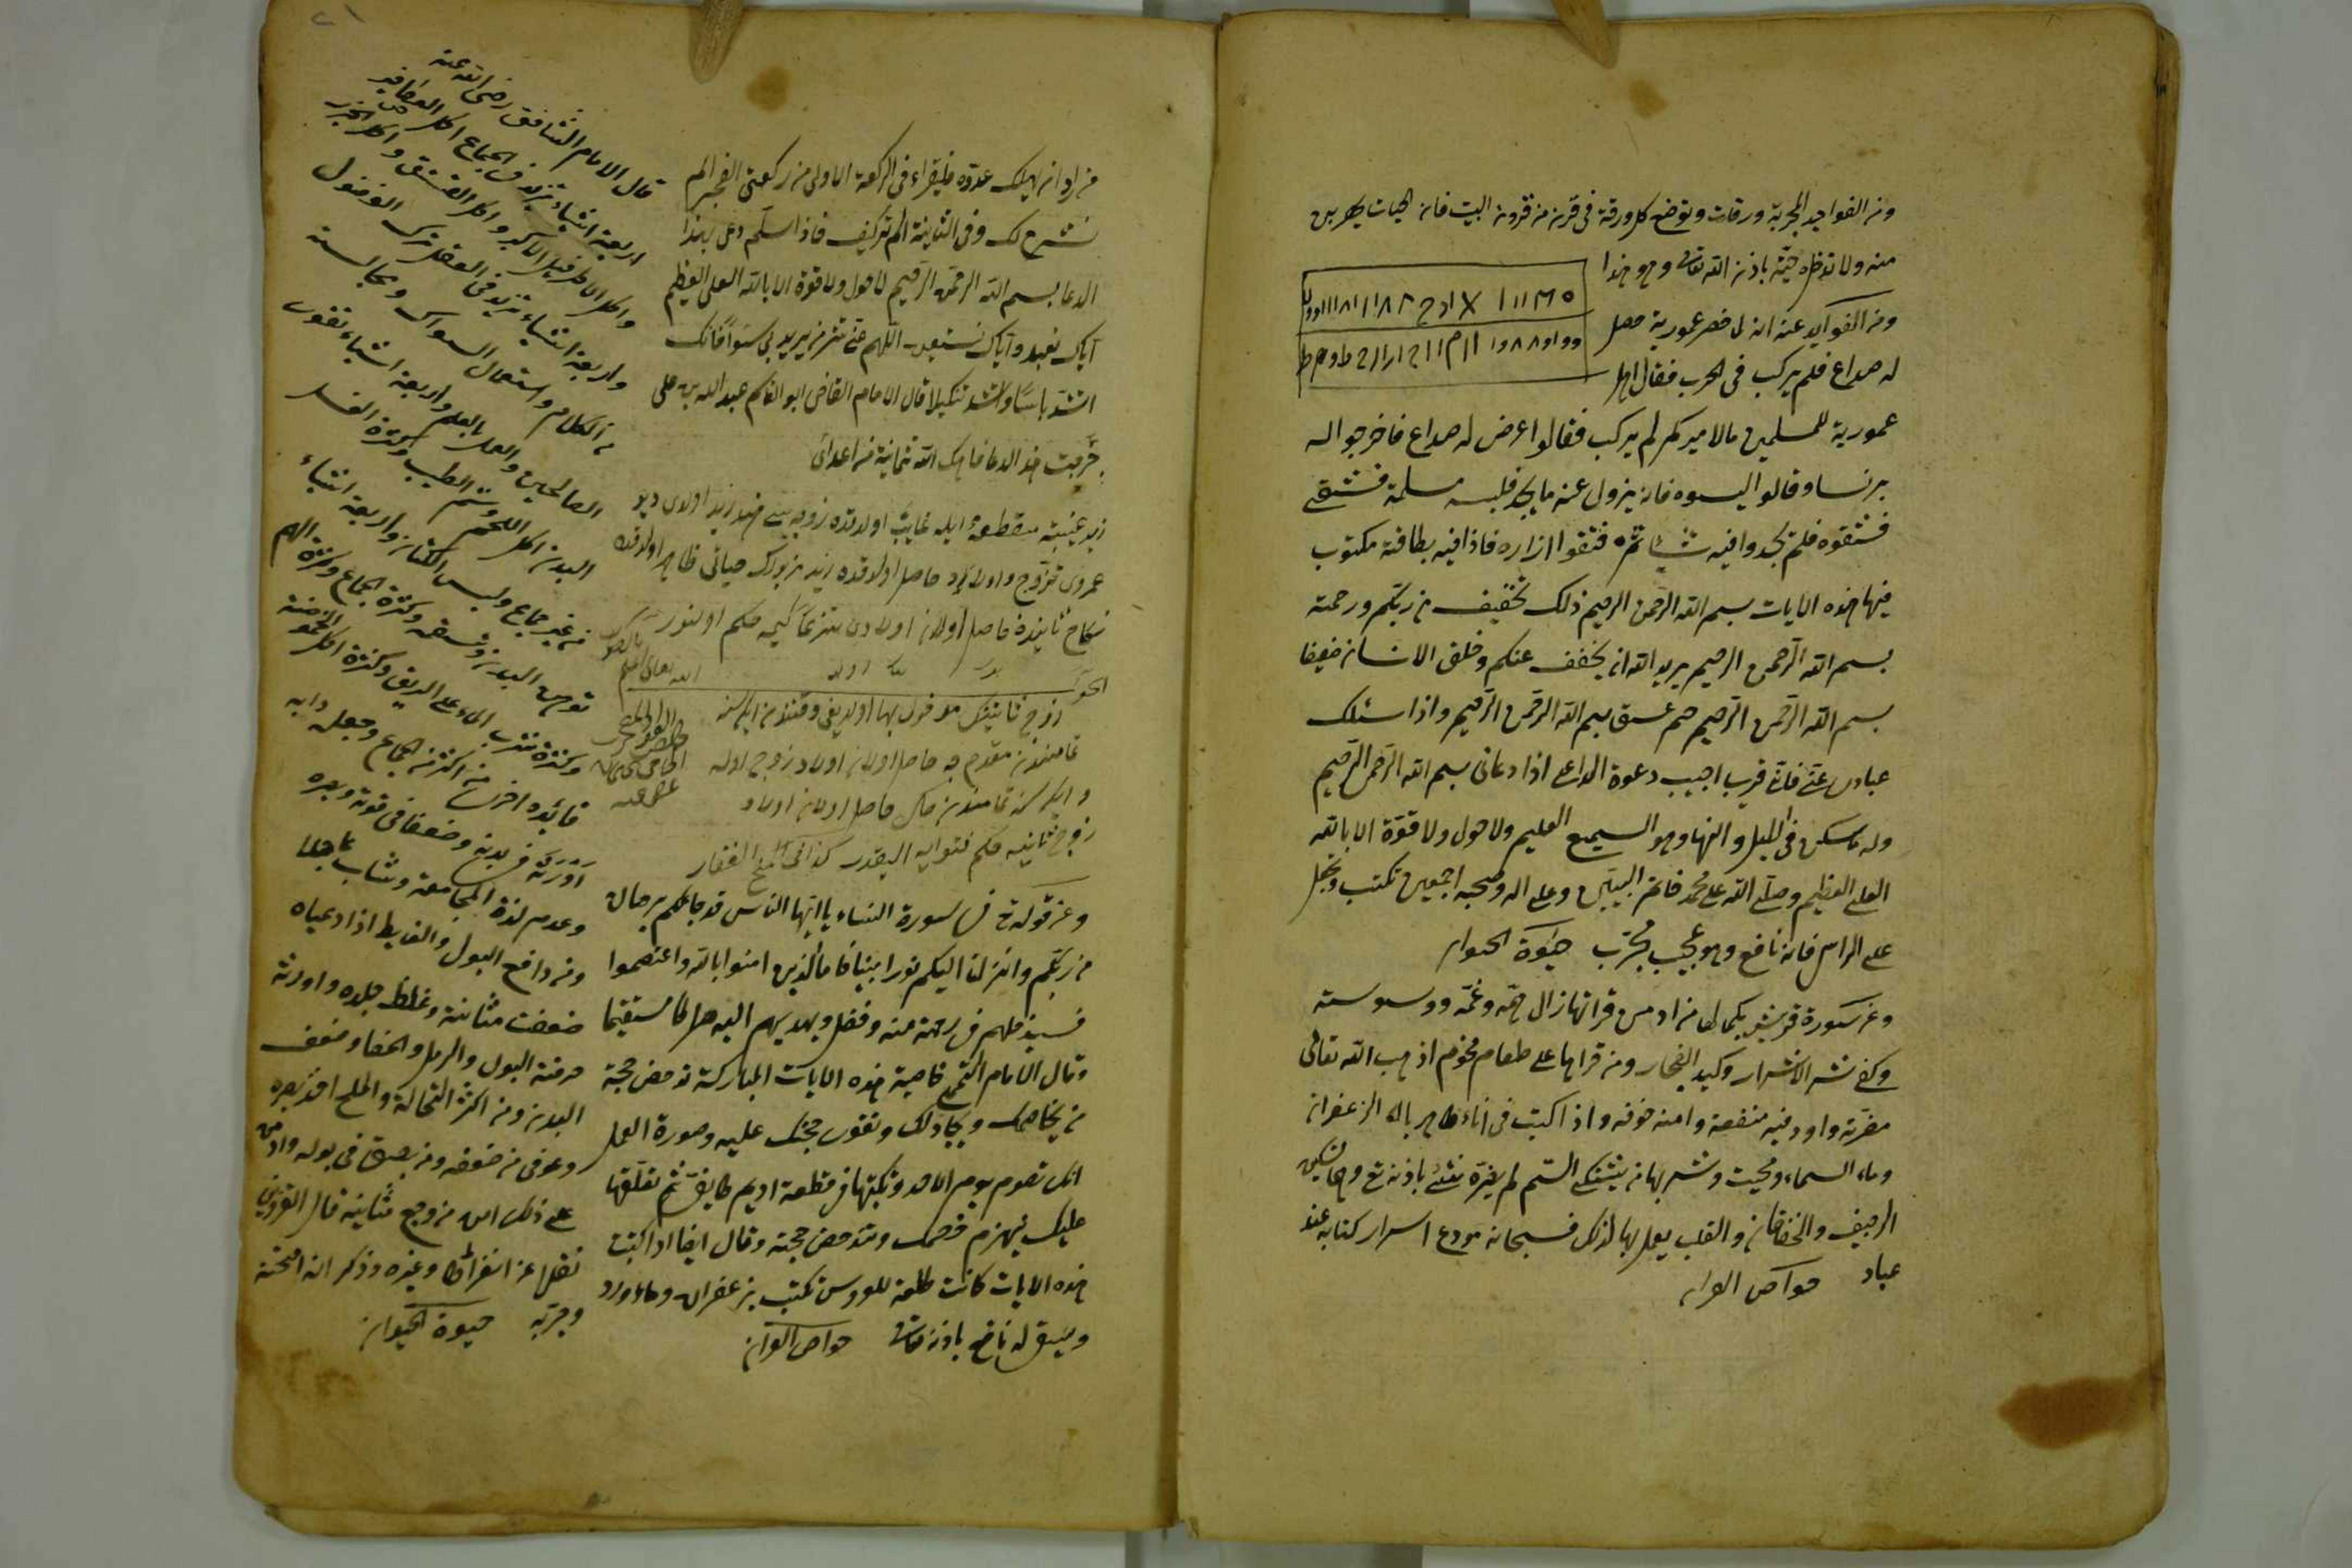 ومن الفوايد المجربة ورقات وتوضع كل ورقة في قرنة من قرون البيت فان الحيات يهربن
منه ولا تدخله حية باذن الله تعالى وهو هذا
ومن الفوايد عنه انه لما حصر عمورية حصل
له صداع فلم يركب في الحرب فقال اهل
عمورية للمسلمين ما لاميركم لم يركب فقالوا عرض له صداع فاخرجوا له
برنسا وقالوا البسوه فانه يزول عنه ما يجد فلبسه مسلمة فشفي
ففتقوه فلم يجدوا فيه شيئا ثم فتقوا ازراره فاذا فيه بطاقة مكتوب
فيها هذه الايات بسم الله الرحمن الرحيم ذلك تخفيف من ربكم ورحمة
بسم الله الرحمن الرحيم يريد الله ان يخفف عنكم وخلق الانسان ضعيفا
بسم الله الرحمن الرحيم حم عسق بسم الله الرحمن الرحيم واذا سئلك
عبادى عنى فانى قريب اجيب دعوة الداعى اذا دعانى بسم الله الرحمن الرحيم
وله ما سكن فى الليل والنهار وهو السميع العليم ولا حول ولا قوة الا بالله
العلى العظيم وصلى الله على محمد خاتم النبيين وعلى اله وصحبه اجمعين تكتب وتجعل
على الراس فانه نافع وهو عجيب مجرب حيوة الحيوان
وعن سورة قريش بكمالها من ادمن قراتها زال همه وغمه ووسوسته
وكفى شر الاشرار وكيد الفجار ومن قراها على طعام اذهب الله تعالى
مضرته واودع فيه منفعة وامنه خوفه واذا كتبت فى اناء طاهر بماء الزعفران
وماء السماء ومحيت وشربها من يشتكى السم لم يضره شئ باذنه تع وهى لتسكين
الرجيف والخفقان والقلب يعمل بها لذلك فسبحانه مودع اسرار كتابه عند
عباد خواص القران
من اراد ان يهلك عدوه فليقراء فى الركعة الاولى من ركعتى الفجر الم
نشرح لك وفى الثانية الم تركيف فاذا سلم دعى بهذا
الدعا بسم الله الرحمن الرحيم لا حول ولا قوة الا بالله العلى العظيم
اياك نعبد واياك نستعين اللهم من يريد بى سوأ فانك
اشد باسا واشد تنكيلا قال الامام القاضى ابو القاسم عبد الله بن على
جربت هذا الدعا فاهلك الله ثمانية من اعدائى
زيد غيبت منقطعه ايله غايب اولدقده زوجه سى هند زيد اولدى ديو
عمروى تزوج و اولاد حاصل اولدقده زيد كلوب حياتى ظاهر اولدقده
نكاح ثانيده حاصل اولان اولادى حكم اولنور
الجواب
زوج ثانينك مدخول بها اولديغى وقتندن ايكى سنه
تمامندن مقدم حاصل اولان اولاد زوج اوله
و ايكى سنه تمامندن حاصل اولان اولاد
زوج ثانيه حكم كذا فى منح الغفار
وعن قوله تع فى سورة النساء يا ايها الناس قد جاءكم برهان
من ربكم وانزلنا اليكم نورا مبينا فاما الذين امنوا بالله واعتصموا
فسيدخلهم فى رحمة منه وفضل ويهديهم اليه صراطا مستقيما
وقال الامام التميمى خاصية هذه الايات المباركة تدحض حجة
من يخاصمك ويجادلك وتقوى حجتك عليه وصورة العمل
انك تصوم يوم الاحد وتكتبها فى قطعة اديم طايفى ثم تعلقها
عليك يهزم خصمك وتدحض حجته وقال ايضا اذا كتبت
هذه الايات تكتب بزعفران وماء ورد
ويسقى له نافع باذن تعالى خواص القران
قال الامام الشافعى رضى الله عنه
اربعة اشياء تزيد فى الجماع اكل العصافير
واكل الاطريفل الاكبر واكل الفستق واكل الجزر
واربعة اشياء تزيد فى العقل ترك الفضول
من الكلام واستعمال السواك ومجالسة
الصالحين والعمل بالعلم واربعة اشياء تقوى
البدن اكل اللحم وشم الطيب وكثرة الغسل
من غير جماع ولبس الكتان واربعة اشياء
توهن البدن وتسقمه كثرة الجماع وكثرة الهم
وكثرة شرب الماء على الريق وكثرة اكل الحموضة
فائده اخرى من اكثر من الجماع وجعله دابه
اورثه فى بدنه وضعفا فى قوته وبصره
وعدم لذة المجامعة وشاب عاجلا
ومن دافع البول والغايط اذا دعياه
ضعفت مثانته وغلظ جلده واورثه
حرقة البول والرمل والحصا وضعف
البدن ومن اكثر النخالة والملح
وعوفى من ضعفه ومن بصق فى بوله وادمن
على ذلك امن من وجع مثانته قال القزوينى
نقلها عن ابقراط وغيره وذكر انه امتحنه
وجربه حيوة الحيوان